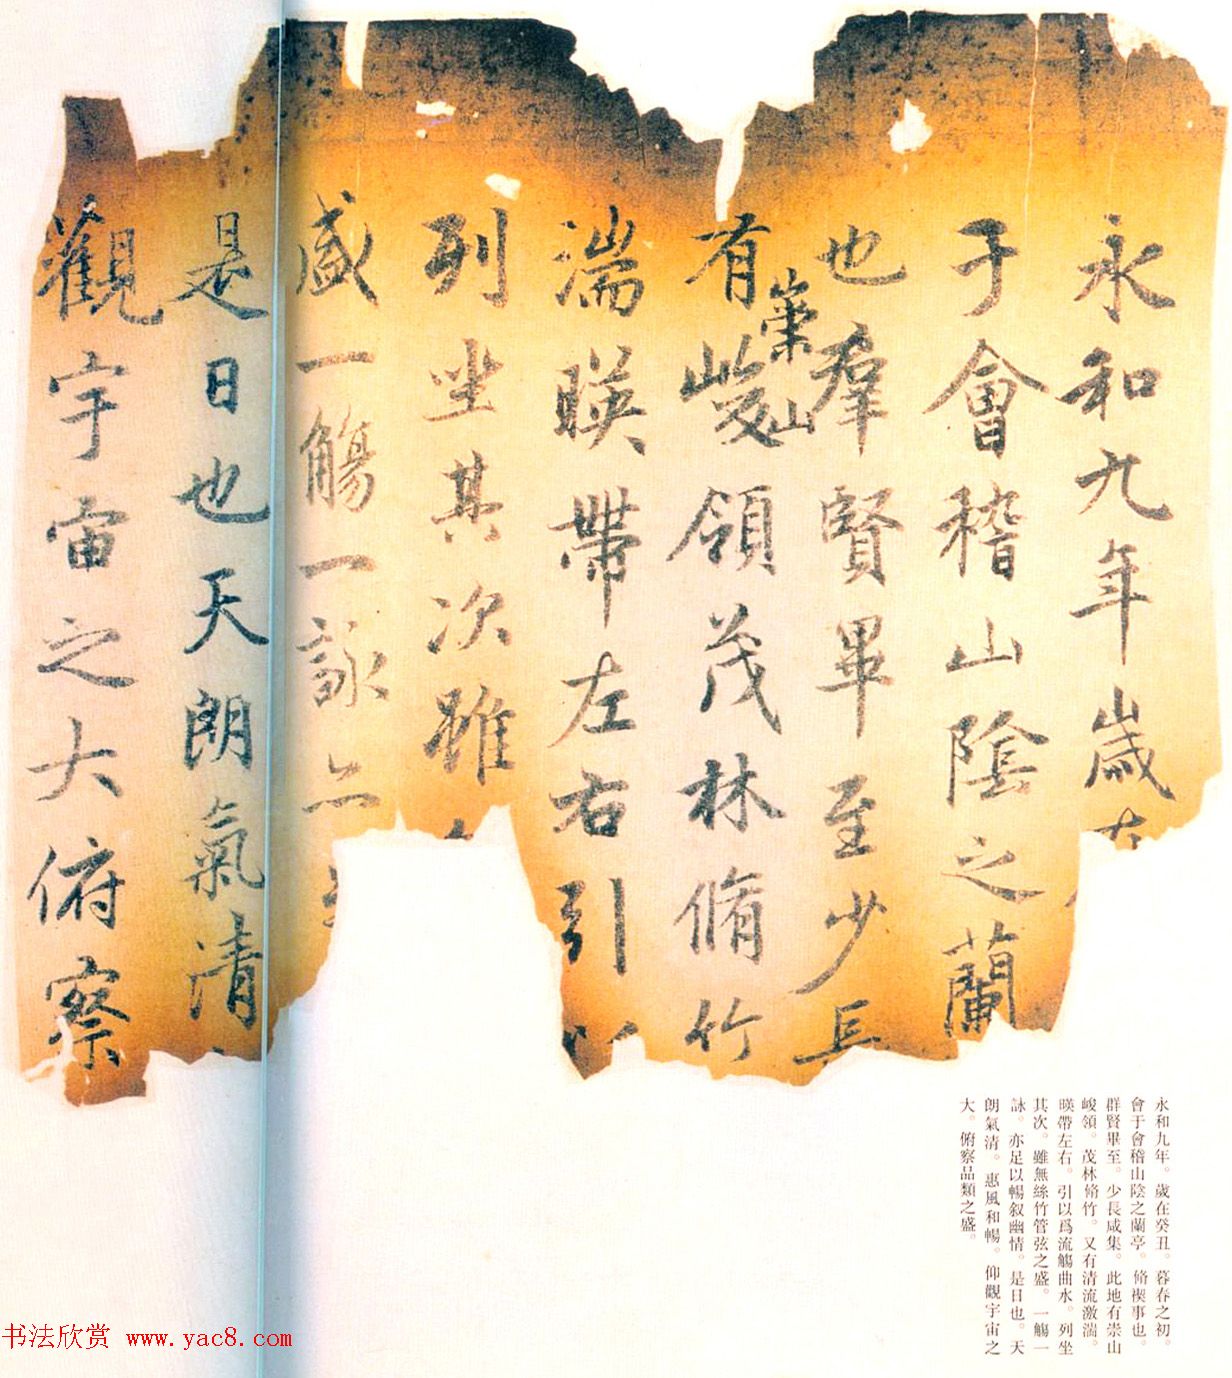 永和九年歲在
于會稽山陰之蘭
也羣賢畢至少長
有崇山峻領茂林脩竹
湍暎帶左右引以
列坐其次雖
盛一觴一詠亦
是日也天朗氣清
觀宇宙之大俯察
永和九年。歲在癸丑。暮春之初。
會于會稽山陰之蘭亭。脩禊事也。
群賢畢至。少長咸集。此地有崇山
峻領。茂林脩竹。又有清流激湍。
暎帶左右。引以爲流觴曲水。列坐
其次。雖無絲竹管弦之盛。一觴一
詠。亦足以暢叙幽情。是日也。天
朗氣清。惠風和暢。仰觀宇宙之
大。俯察品類之盛。
书法欣赏 www.yac8.com